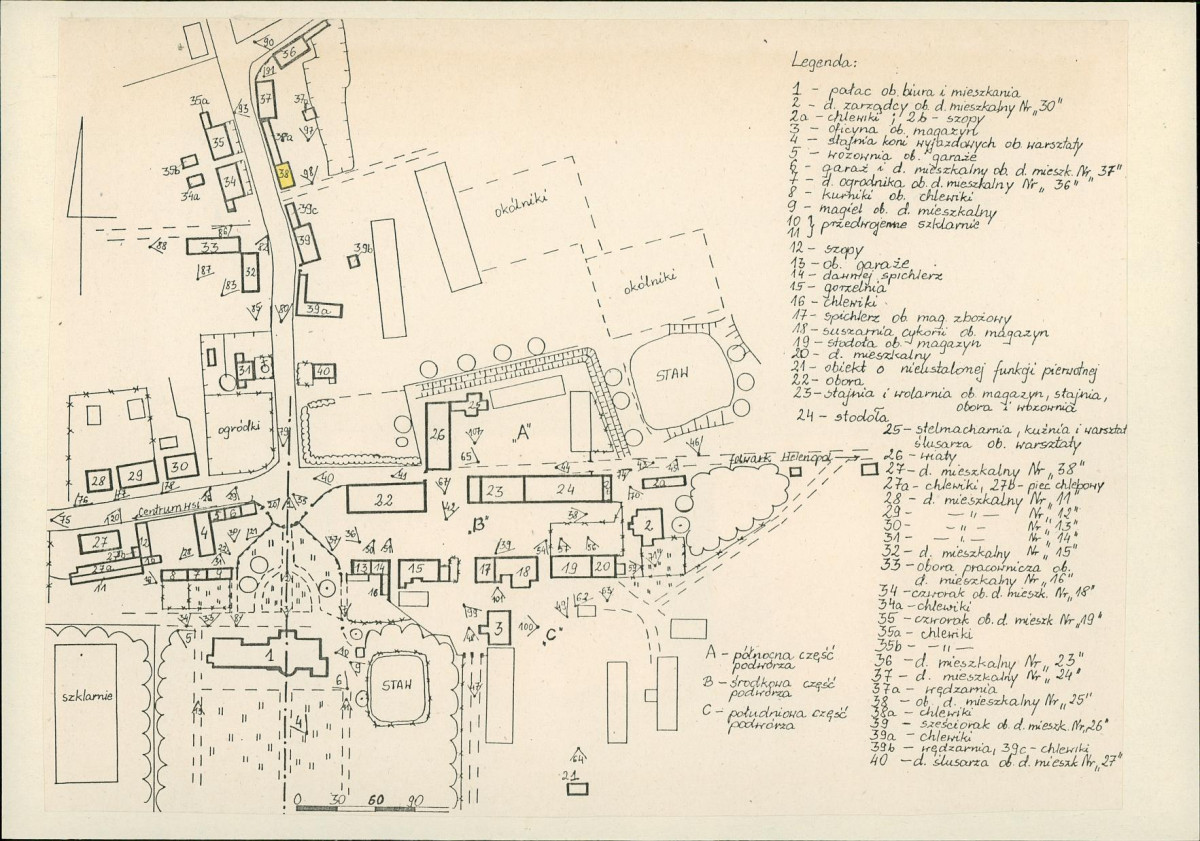 Legenda:
1 – pałac ob. biura i mieszkania
2 – d. zarządcy ob. d. mieszkalny Nr „30"
2a – chlewiki i 2b – szopy
3 – oficyna ob. magazyn
4 – stajnia koni wyjazdowych ob. warsztaty
5 – wozownia ob. garaże
6 – garaż i d. mieszkalny ob. d. mieszk. Nr „37"
7 – d. ogrodnika ob. d. mieszkalny Nr „36"
8 – kurniki ob. chlewiki
9 – magiel ob. d. mieszkalny
10 } przedwojenne szklarnie
11 }
12 – szopy
13 – ob. garaże
14 – dawniej spichlerz
15 – gorzelnia
16 – chlewiki
17 – spichlerz ob. mag. zbożowy
18 – suszarnia cykorii ob. magazyn
19 – stodoła ob. magazyn
20 – d. mieszkalny
21 – obiekt o nieustalonej funkcji pierwotnej
22 – obora
23 – stajnia i wolarnia ob. magazyn, stajnia,
obora i wozownia
24 – stodoła
25 – stelmacharnia, kuźnia i warsztat
ślusarza ob. warsztaty
26 – wiaty
27 – d. mieszkalny Nr „38"
27a – chlewiki, 27b – piec chlebowy
28 – d. mieszkalny Nr „11"
29 – — „ — Nr „12"
30 – — „ — Nr „13"
31 – — „ — Nr „14"
32 – d. mieszkalny Nr „15"
33 – obora pracownicza ob.
d. mieszkalny Nr „16"
34 – czworak ob. d. mieszk. Nr „18"
34a – chlewiki
35 – czworak ob. d. mieszk Nr „19"
35a – chlewiki
35b – — „ —
36 – d. mieszkalny Nr „23"
37 – d. mieszkalny Nr „24"
37a – wędzarnia
38 – ob. d. mieszkalny Nr „25"
38a – chlewiki
39 – sześciorak ob. d. mieszk. Nr „26"
39a – chlewiki
39b – wędzarnia, 39c – chlewiki
40 – d. ślusarza ob. d. mieszk Nr „27"
A – północna część
podwórza
B – środkowa część
podwórza
C – południowa część
podwórza
90
36
91
37
37a
97
93
35a
35
38a
38
98
35b
34
34a
39c
39
39b
86
33
88
82
87
32
83
85
80
39a
okólniki
okólniki
STAW
31
40
ogródki
79
25
26
„A"
65
46
folwark Helenopol
28
29
30
76
78
75
Centrum wsi
40
22
23
24
2a
70
67
42
„B"
2
27
12
4
5
6
27a
11
8
7
9
13
14
16
15
39
17
18
38
34
19
20
62
3
100
„C"
5
1
STAW
6
szklarnie
4
64
21
0 30 60 90